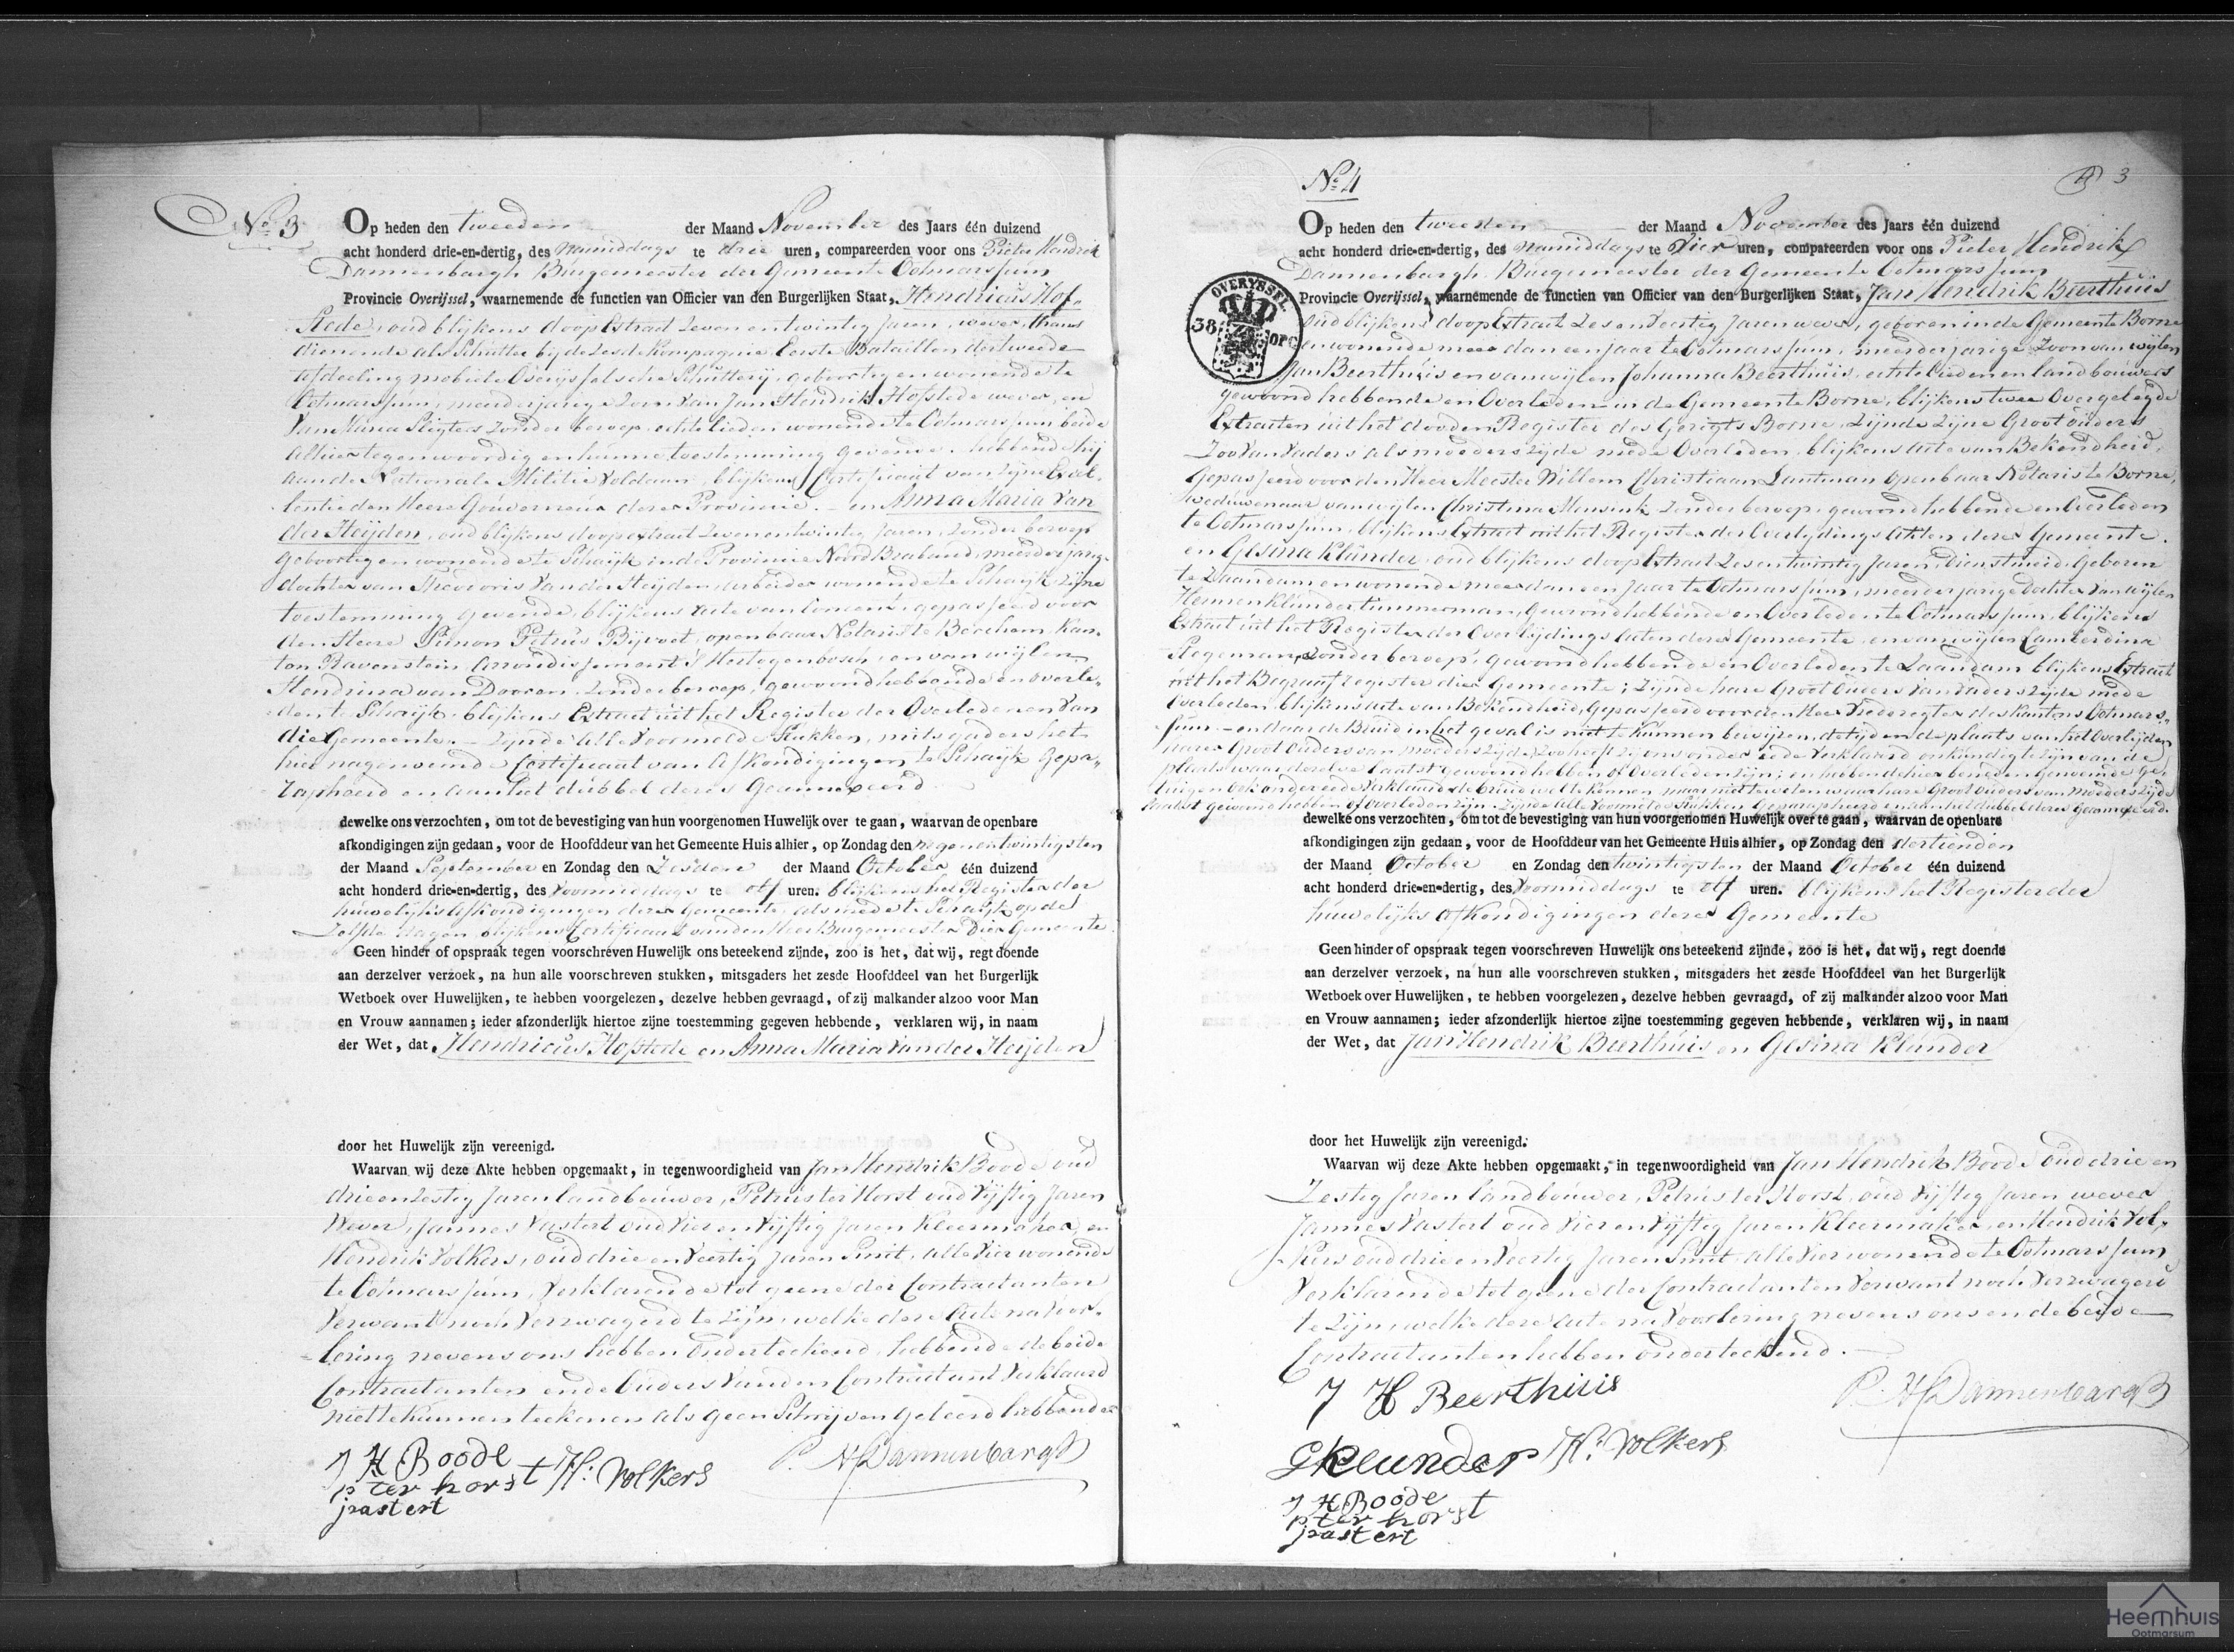 No 3
Op heden den tweeden der Maand November des Jaars één duizend
acht honderd drie-en-dertig, des namiddags te drie uren, compareerden voor ons Pieter Hendrik
Dannenbargh Burgemeester der Gemeente Ootmarssum
Provincie Overijssel, waarnemende de functien van Officier van den Burgerlijken Staat, Hendricus Hof-
stede, oud blijkens doop Extract zeven en twintig Jaren, wever, thans
dienende als Schutter bij de zesde Kompagnie, Eerste Bataillon der tweede
afdeeling mobiele Overijsselsche Schutterij, geboortig en wonende te
Ootmarssum, meerderjarige Zoon van Jan Hendrik Hofstede wever, en
van Maria zonder beroep, echte lieden wonende te Ootmarssum beide
alhier tegenwoordig en hunne toestemming gevende. hebbende hij
aan de Nationale Militie voldaan, blijkens Certificaat van zijne Excel-
lentie den Heere Gouverneur dezer Provincie. - en Anna Maria van
der Heijden, oud blijkens doop extract zeven en twintig Jaren, zonder beroep
geboortig en wonende te Schaijk in de Provincie Noord Braband, meerderjarige
dochter van Theodoris van der Heijden, arbeider wonende te Schaijk zijne
toestemming gevende, blijkens acte van Consent, gepasseerd voor
den Heere Simon Petrus Bijvoet, openbaar Notaris te Berchem, Kan-
ton Ravenstein Arrondissement 's Hertogenbosch, en van wijlen
Hendrina van Dooren, zonder beroep, gewoond hebbende en overle-
den te Schaijk, blijkens Extract uit het Register der Overledenen van
die Gemeente. - Zijnde alle voormelde Stukken, mitsgaders het
hier nagenoemde Certificaat van Afkondigingen te Schaijk Gepa-
rapheerd en aan het dubbel dezes Geannexeerd
dewelke ons verzochten, om tot de bevestiging van hun voorgenomen Huwelijk over te gaan, waarvan de openbare
afkondigingen zijn gedaan, voor de Hoofddeur van het Gemeente Huis alhier, op Zondag den negenentwintigsten
der Maand September en Zondag den zesden der Maand October één duizend
acht honderd drie-en-dertig, des voormiddags te elf uren. blijkens het Register der
huwelijks Afkondigingen dezer Gemeente, als mede te Schaijk op de
zelfde dagen, blijkens Certificaat van den Heer Burgemeester dier Gemeente
Geen hinder of opspraak tegen voorschreven Huwelijk ons beteekend zijnde, zoo is het, dat wij, regt doende
aan derzelver verzoek, na hun alle voorschreven stukken, mitsgaders het zesde Hoofddeel van het Burgerlijk
Wetboek over Huwelijken, te hebben voorgelezen, dezelve hebben gevraagd, of zij malkander alzoo voor Man
en Vrouw aannamen; ieder afzonderlijk hiertoe zijne toestemming gegeven hebbende, verklaren wij, in naam
der Wet, dat Hendricus Hofstede en Anna Maria van der Heijden
door het Huwelijk zijn vereenigd.
Waarvan wij deze Akte hebben opgemaakt, in tegenwoordigheid van Jan Hendrik Boode oud
drie en zestig Jaren landbouwer, Petrus ter Horst oud vijftig Jaren
Wever, Jannes Vastert oud vier en vijftig Jaren Kleermaker en
Hendrik Volkers, oud drie en veertig Jaren Smit, alle vier wonende
te Ootmarssum, verklarende tot geene der Contractanten
verwant noch verzwagerd te zijn, welke deze Acte na voor-
lezing nevens ons hebben onderteekend, hebbende de beide
Contractanten en de Ouders van den Contractant verklaard
niet te kunnen teekenen als geen Schrijven geleerd hebbende
J H Boode
p ter horst H: Volkers
P. H Dannenbargh
jvastert
No 4
3
Op heden den tweeden der Maand November des Jaars één duizend
acht honderd drie-en-dertig, des namiddags te vier uren, compareerden voor ons Pieter Hendrik
Dannenbargh Burgemeester der Gemeente Ootmarssum
OVERYSSEL.
38
OPC
Provincie Overijssel, waarnemende de functien van Officier van den Burgerlijken Staat, Jan Hendrik Beerthuis
oud blijkens doop Extract zes en veertig Jaren wever, geboren in de Gemeente Borne
en wonende meer dan een jaar te Ootmarssum, meerderjarige Zoon van wijlen
Jan Beerthuis en van wijlen Johanna Beerthuis, echte lieden en landbouwers
gewoond hebbende en Overleden in de Gemeente Borne, blijkens twee Overgelegde
Extracten uit het dooden Register des Gerigts Borne, zijnde zijne Groot ouders
zoo van vaders als moeders zijde mede Overleden, blijkens acte van Bekendheid,
gepasseerd voor den Heer Meester Willem Christiaan Lantman openbaar Notaris te Borne,
weduwenaar van wijlen Christina Mensink zonder beroep, gewoond hebbende en Overleden
te Ootmarssum, blijkens Extract uit het Register der Overlijdings Akten dezer Gemeente.
en Gesina Klunder, oud blijkens doop Extract zes en twintig Jaren, dienstmeid, Geboren
te Zaandam en wonende meer dan een jaar te Ootmarssum, meerderjarige dochter van wijlen
Hermen Klunder timmerman, gewoond hebbende en Overleden te Ootmarssum, blijkens
Extract uit het Register der Overlijdings Acten dezer Gemeente, en van wijlen Lamberdina
Stegeman, zonder beroep, gewoond hebbende en Overleden te Zaandam blijkens Extract
uit het Begraaf register dier Gemeente; zijnde hare Groot Ouders van vaders zijde mede
Overleden blijkens acte van Bekendheid, Gepasseerd voor den Heer Vrederegter des Kantons Ootmars-
sum. - en daar de Bruid in het geval is niet te kunnen bewijzen, de tijd en de plaats van het Overlijden
harer Groot Ouders van moeders zijde, zoo heeft zij ons onder eede verklaard onkundig te zijn van de
plaats waar dezelve laatst gewoond hebben of Overleden zijn; en hebben de hier beneden genoemde ge-
tuigen ook onder eede verklaard de bruid wel te kennen maar niet te weten waar hare Groot Ouders van moeders zijde
laatst gewoond hebben of overleden zijn. Zijnde alle voormelde Stukken Geparapheerd en aan het dubbel dezes geannexeerd.
dewelke ons verzochten, om tot de bevestiging van hun voorgenomen Huwelijk over te gaan, waarvan de openbare
afkondigingen zijn gedaan, voor de Hoofddeur van het Gemeente Huis alhier, op Zondag den dertienden
der Maand October en Zondag den twintigsten der Maand October één duizend
acht honderd drie-en-dertig, des voormiddags te elf uren. blijkens het Register der
huwelijks afkondigingen dezer Gemeente
Geen hinder of opspraak tegen voorschreven Huwelijk ons beteekend zijnde, zoo is het, dat wij, regt doende
aan derzelver verzoek, na hun alle voorschreven stukken, mitsgaders het zesde Hoofddeel van het Burgerlijk
Wetboek over Huwelijken, te hebben voorgelezen, dezelve hebben gevraagd, of zij malkander alzoo voor Man
en Vrouw aannamen; ieder afzonderlijk hiertoe zijne toestemming gegeven hebbende, verklaren wij, in naam
der Wet, dat Jan Hendrik Beerthuis en Gesina Klunder
door het Huwelijk zijn vereenigd.
Waarvan wij deze Akte hebben opgemaakt, in tegenwoordigheid van Jan Hendrik Boode oud drie en
zestig Jaren landbouwer, Petrus ter Horst, oud vijftig Jaren wever
Jannes Vastert oud vier en vijftig Jaren Kleermaker, en Hendrik Vol-
kers oud drie en veertig Jaren Smit, alle vier wonende te Ootmarssum
verklarende tot geene der Contractanten verwant noch verzwagerd
te zijn, welke deze acte na voorlezing nevens ons en de beide
Contractanten hebben onderteekend.
J H Beerthuis
P. H Dannenbargh
G klunder H: Volkers
J H Boode
p ter horst
jvastert
Heemhuis
Ootmarsum